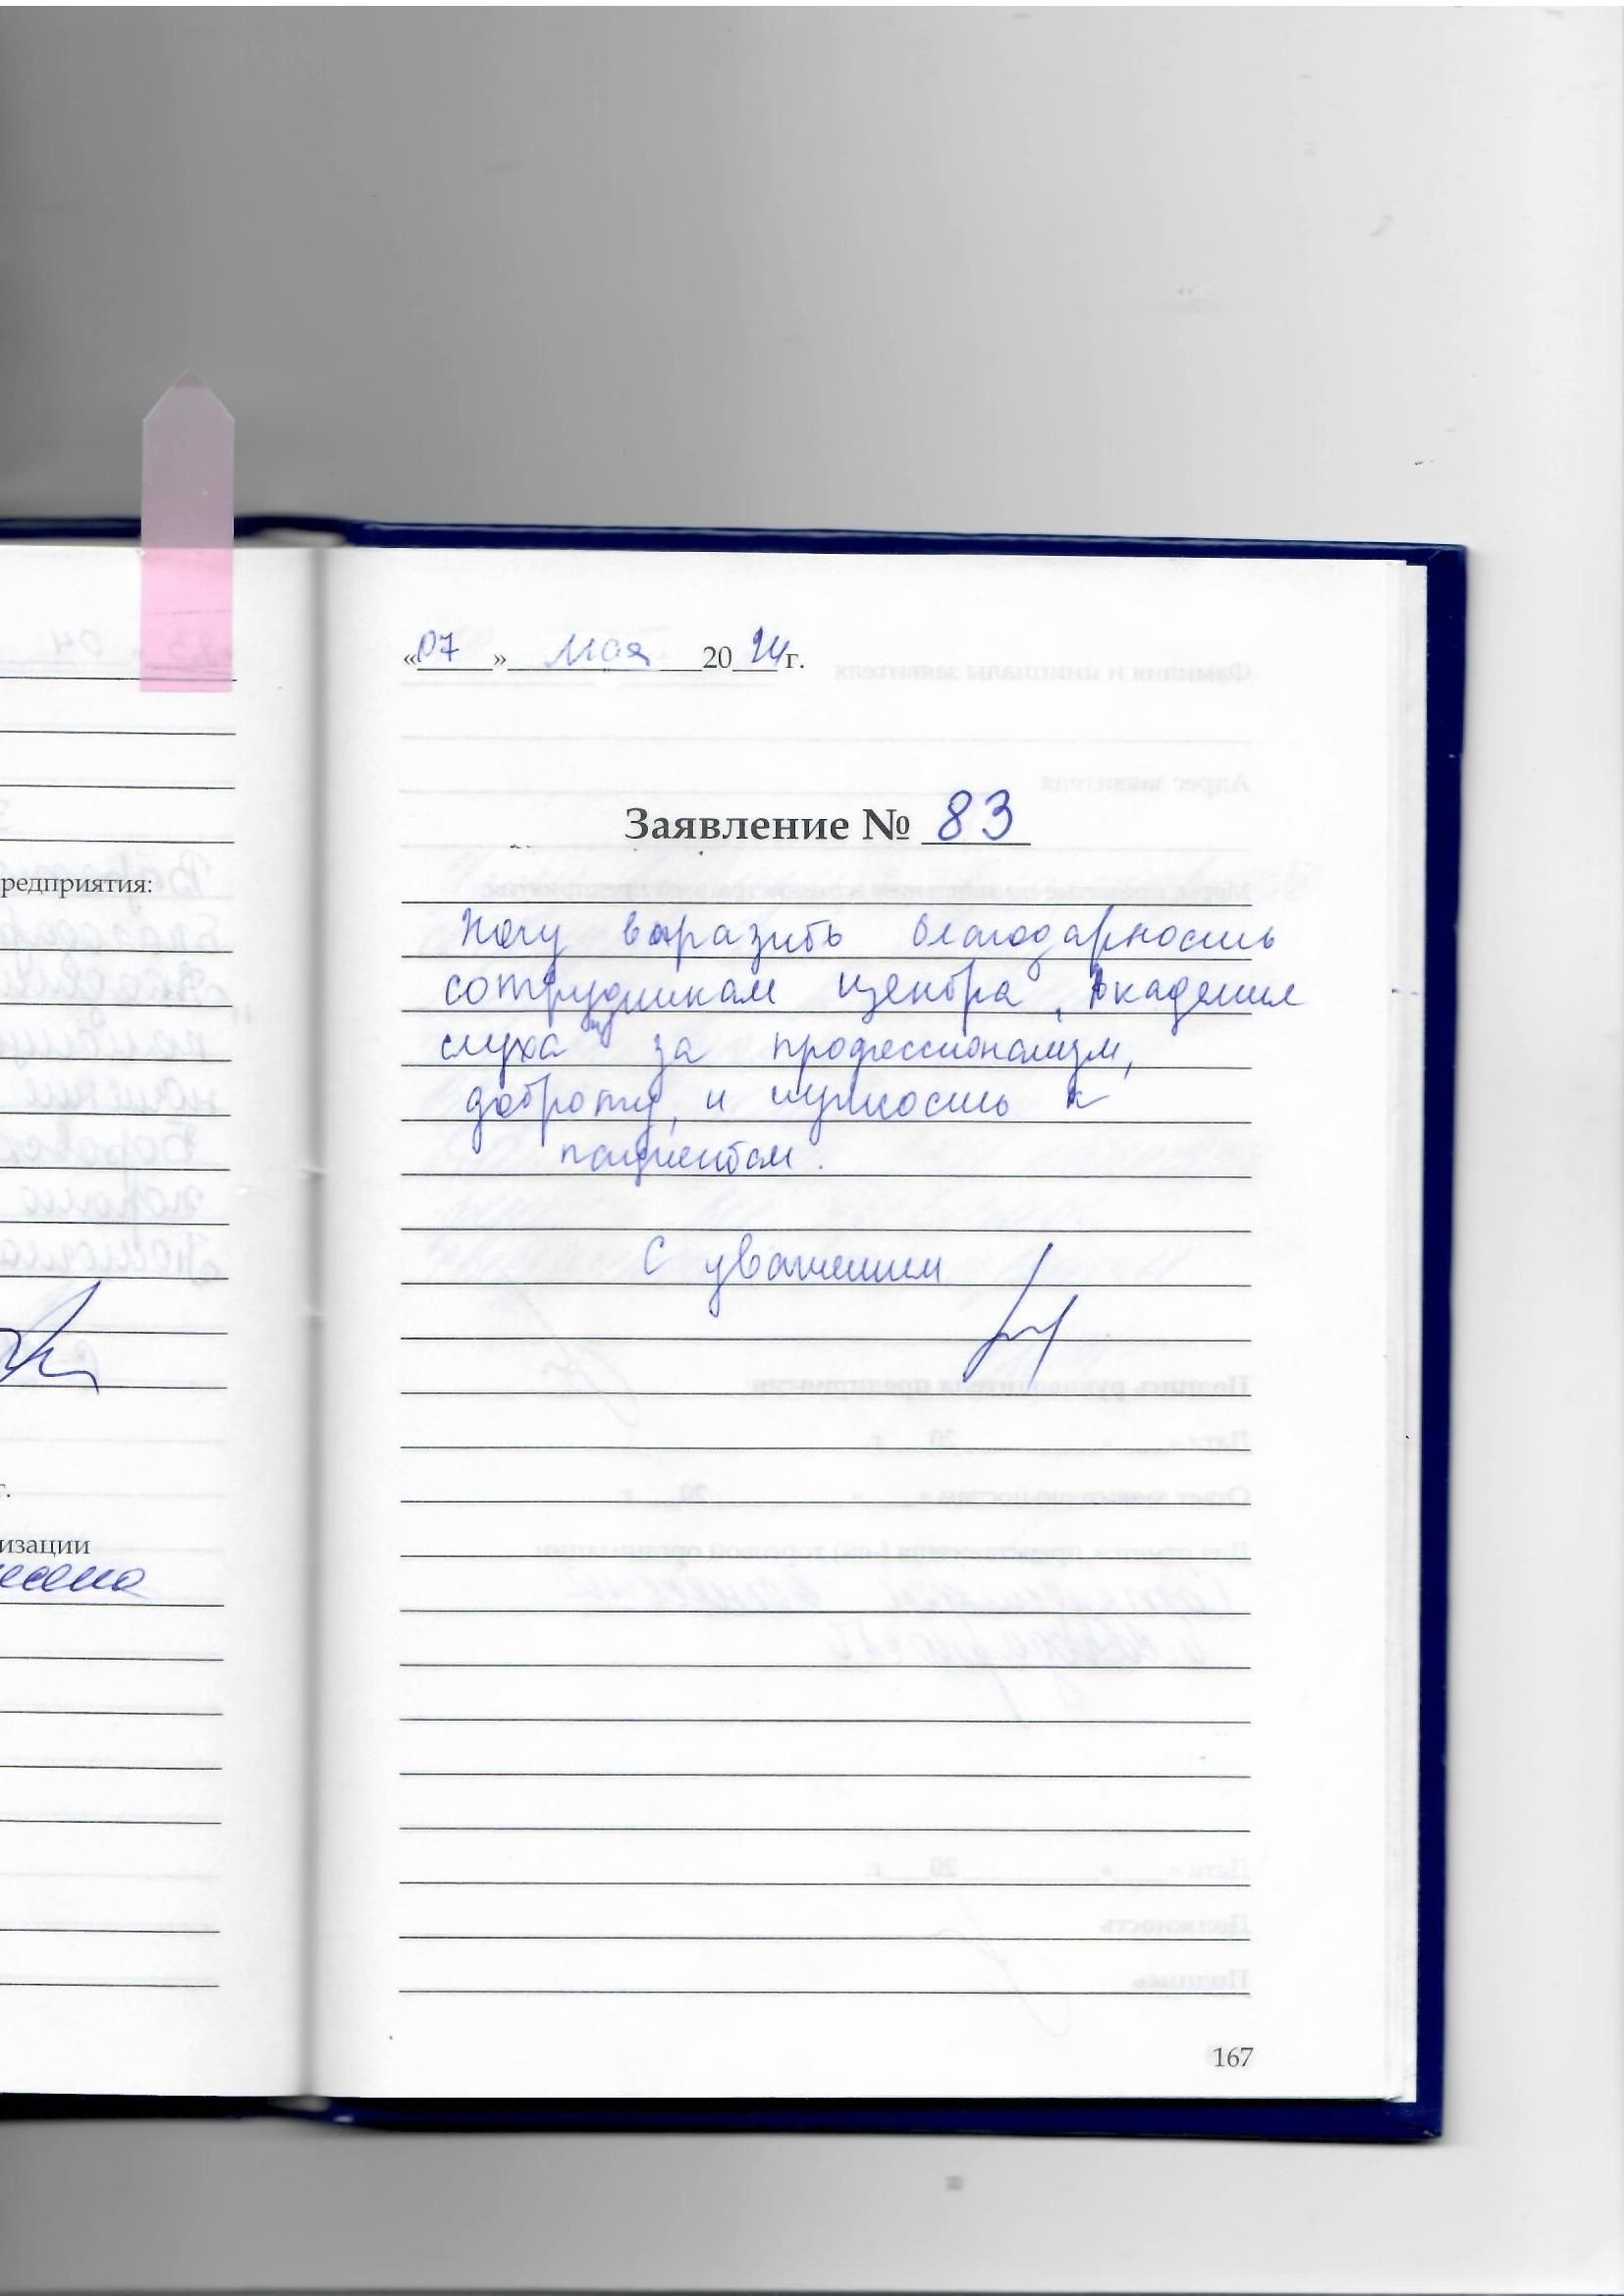 «07» мая 2024 г.
Заявление № 83
Хочу выразить благодарность
сотрудникам центра „Академия
слуха" за профессионализм,
доброту, и чуткость к
пациентам.
С уважением
167
редприятия:
г.
изации